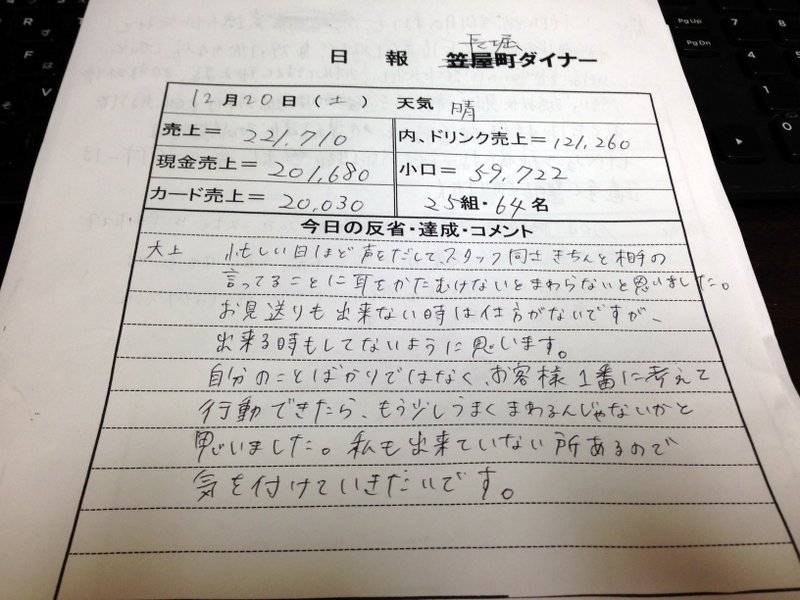 長堀
日 報 笠屋町ダイナー
12月20日(土) 天気 晴
売上= 221,710 内、ドリンク売上=121,260
現金売上= 201,680 小口= 59,722
カード売上= 20,030 25組・64名
今日の反省・達成・コメント
大上 忙しい日ほど声をだして、スタッフ同士きちんと相手の
言ってることに耳をかたむけないとまわらないと思いました。
お見送りも出来ない時は仕方がないですが、
出来る時もしてないように思います。
自分のことばかりではなく、お客様1番に考えて
行動できたら、もう少しうまくまわるんじゃないかと
思いました。私も出来ていない所あるので
気を付けていきたいです。
PgUp
PgDn
7
4
1
0